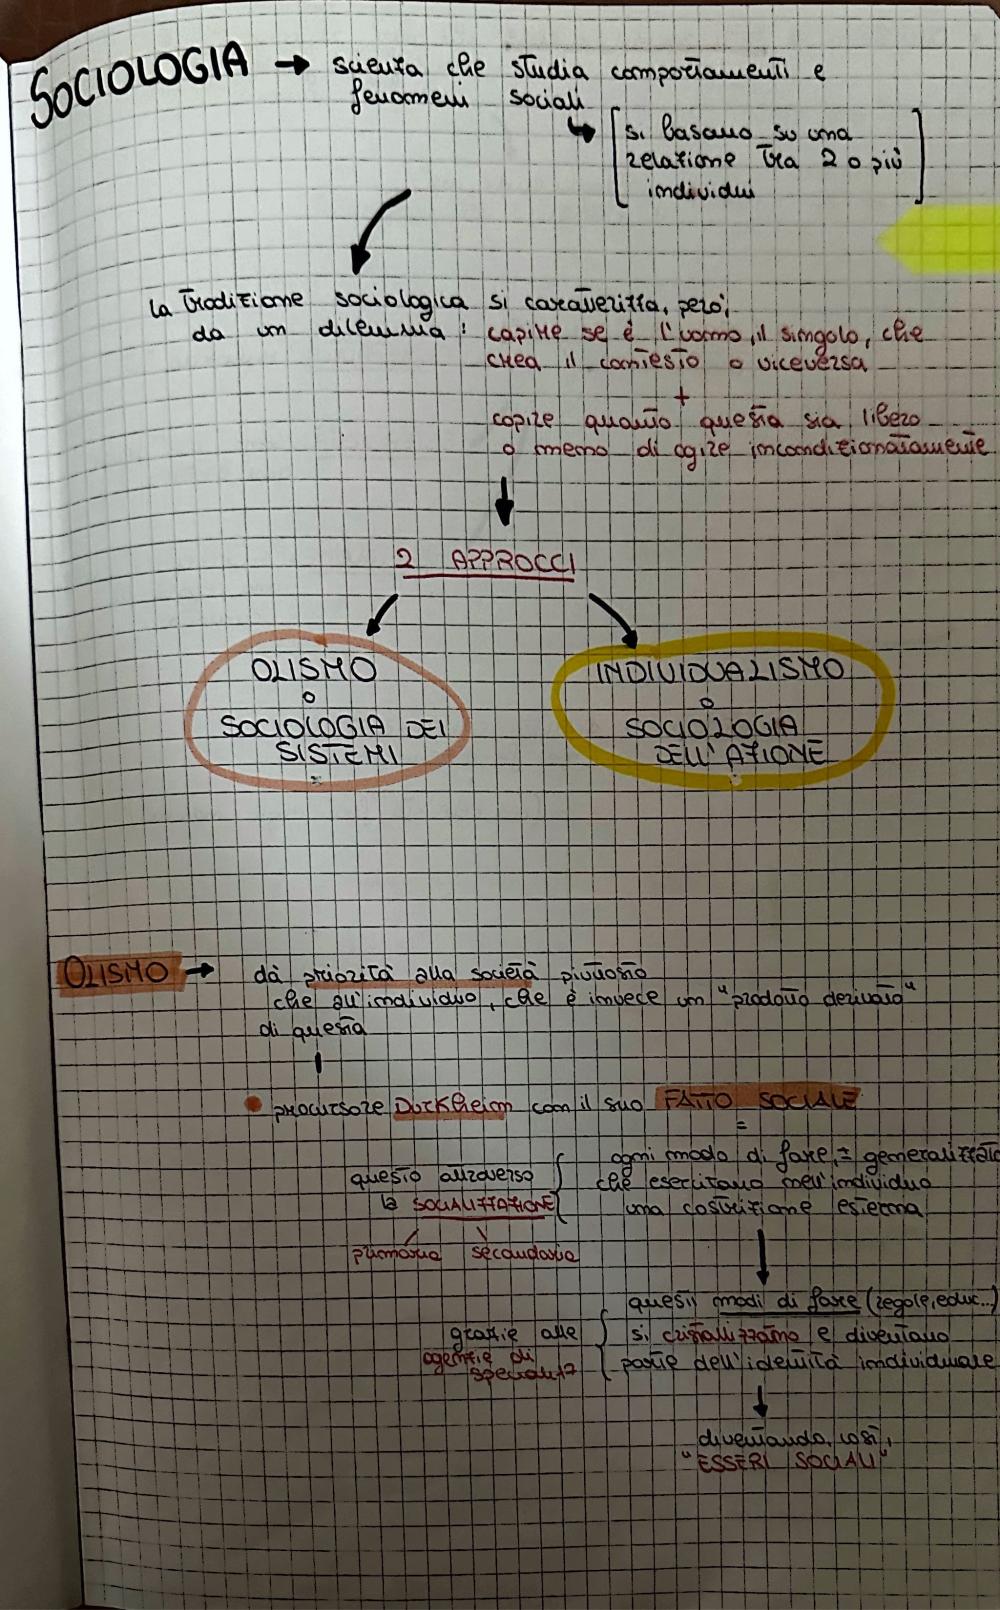 SOCIOLOGIA → scienza che studia comportamenti e
fenomeni sociali
si basano su una
relazione tra 2 o più
individui
la tradizione sociologica si caratterizza, però,
da un dilemma: capire se è l'uomo, il singolo, che
crea il contesto o viceversa
+
capire quanto questa sia libero
o meno di agire incondizionatamente
2 APPROCCI
OLISMO
o
SOCIOLOGIA DEI
SISTEMI
=
INDIVIDUALISMO
o
SOCIOLOGIA
DELL'AZIONE
OLISMO → dà priorità alla società piuttosto
che all'individuo, che è invece un "prodotto derivato"
di questa
• precursore Durkheim con il suo FATTO SOCIALE
=
ogni modo di fare, ± generalizzato
che esercitano nell'individuo
una costrizione esterna
questo attraverso
la SOCIALIZZAZIONE
primaria secondaria
questi modi di fare (regole, educ...)
si cristallizzano e diventano
parte dell'identità individuale
grazie alle
agenzie di
diventando, così,
"ESSERI SOCIALI"